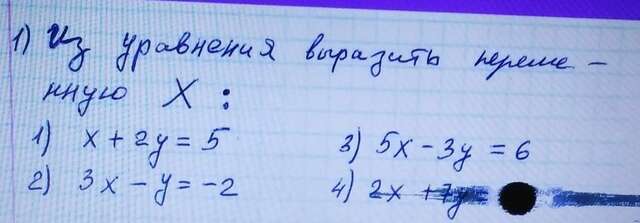 1) Из уравнения выразить переме-
нную X:
1) x + 2y = 5
2) 3x - y = -2
3) 5x - 3y = 6
4) 2x + 7y =